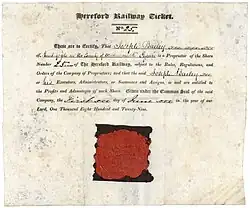 Hereford Railway Ticket.
No 25
These are to Certify, That Joseph Bailey
of in the County of Esquire is a Proprietor of the Share
Number 25 of The Hereford Railway, subject to the Rules, Regulations, and
Orders of the Company of Proprietors; and that the said Joseph Bailey
his Executors, Administrators, or Successors and Assigns, is and are entitled to
the Profits and Advantages of such Share. Given under the Common Seal of the said
Company, the day of June in the year of our
Lord, One Thousand Eight Hundred and Twenty-Nine.